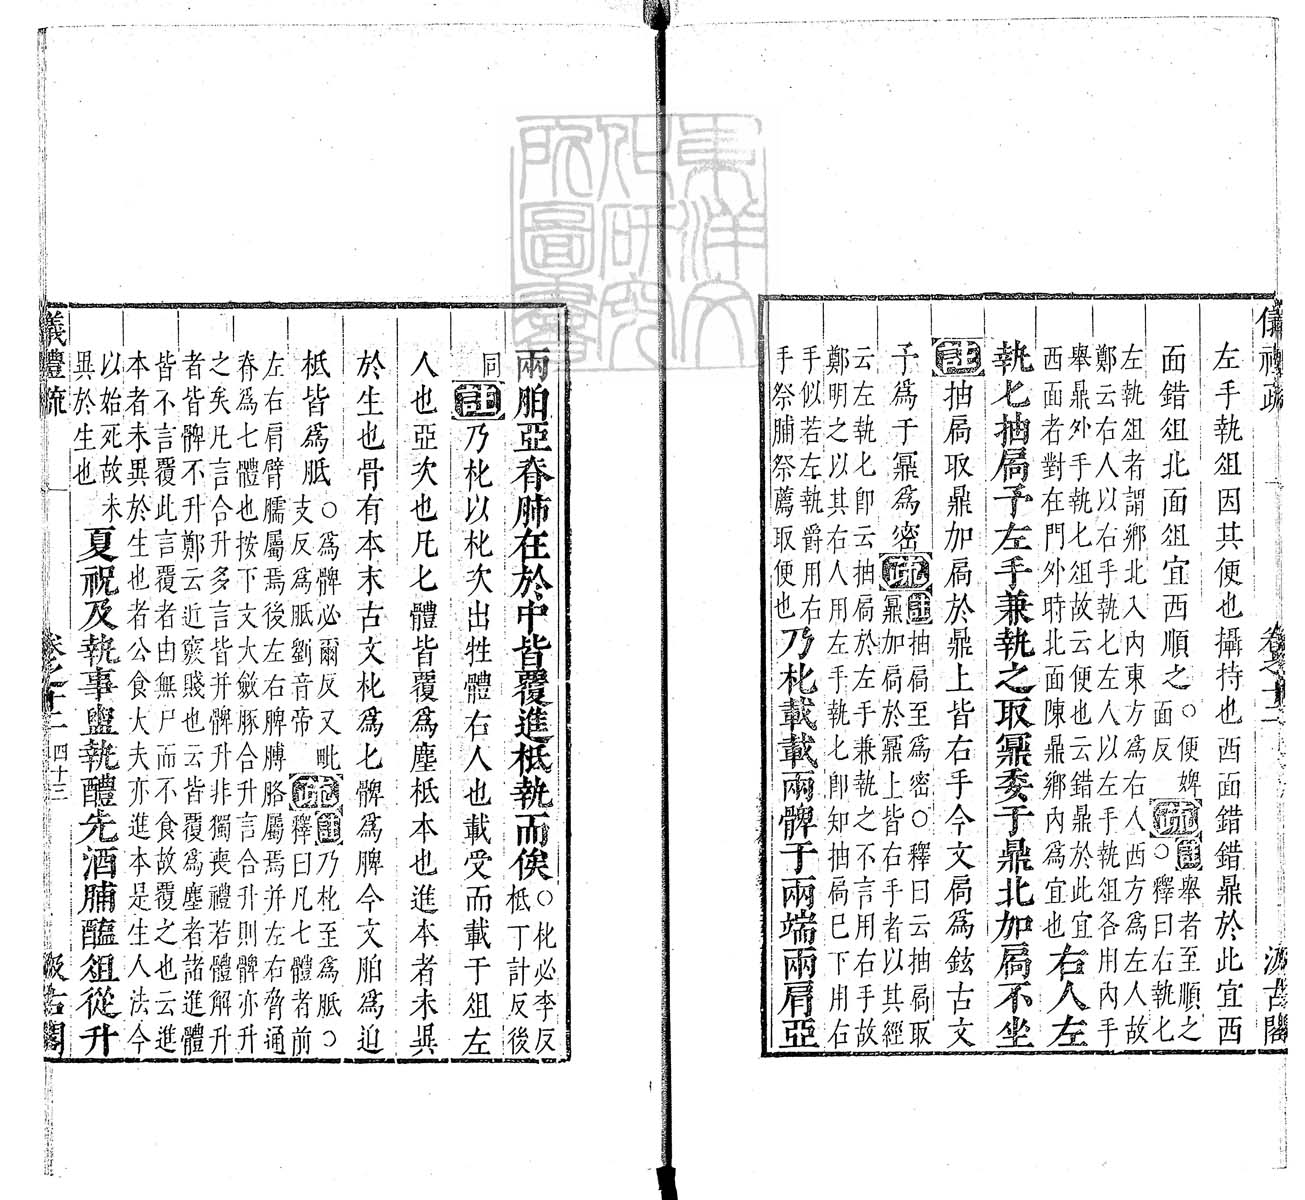 儀禮疏
卷之十二
汲古閣
左手執俎因其便也攝持也西面錯錯鼎於此宜西
面錯俎北面俎宜西順之
○便婢
面反
疏
註
舉者至順之
○釋曰右執匕
左執俎者謂鄉北入內東方為右人西方為左人故
鄭云右人以右手執匕左人以左手執俎各用內手
舉鼎外手執匕俎故云便也云錯鼎於此宜
西面者對在門外時北面陳鼎鄉內為宜也
右人左
執匕抽扃予左手兼執之取鼏委于鼎北加扃不坐
註
抽扃取鼎加扃於鼎上皆右手今文扃為鉉古文
予為于鼏為密
疏
註
抽扃至為密○釋曰云抽扃取
鼏加扃於鼏上皆右手者以其經
云左執匕卽云抽扃於左手兼執之不言用右手故
鄭明之以其右人用左手執匕卽知抽扃已下用右
手似若左執爵用右
手祭脯祭薦取便也
乃朼載載兩髀于兩端兩肩亞
兩胉亞脊肺在於中皆覆進柢執而俟
○朼必李反
柢丁計反後
同
註
乃朼以朼次出牲體右人也載受而載于俎左
人也亞次也凡七體皆覆為塵柢本也進本者未異
於生也骨有本末古文朼為匕髀為脾今文胉為迫
柢皆為胝
○為髀必爾反又毗
支反為胝劉音帝
疏
註
乃朼至為胝○
釋曰凡七體者前
左右肩臂臑屬焉後左右脾膊胳屬焉并左右脅通
脊為七體也按下文大斂豚合升言合升則髀亦升
之矣凡言合升多言皆并髀升非獨喪禮若體解升
者皆髀不升鄭云近竅賤也云皆覆為塵者諸進體
皆不言覆此言覆者由無尸而不食故覆之也云進
本者未異於生也者公食大夫亦進本是生人法今
以始死故未
異於生也
夏祝及執事盥執醴先酒脯醢俎從升
儀禮疏
卷之十二
四十三
汲古閣
東洋文
化研究
所圖書